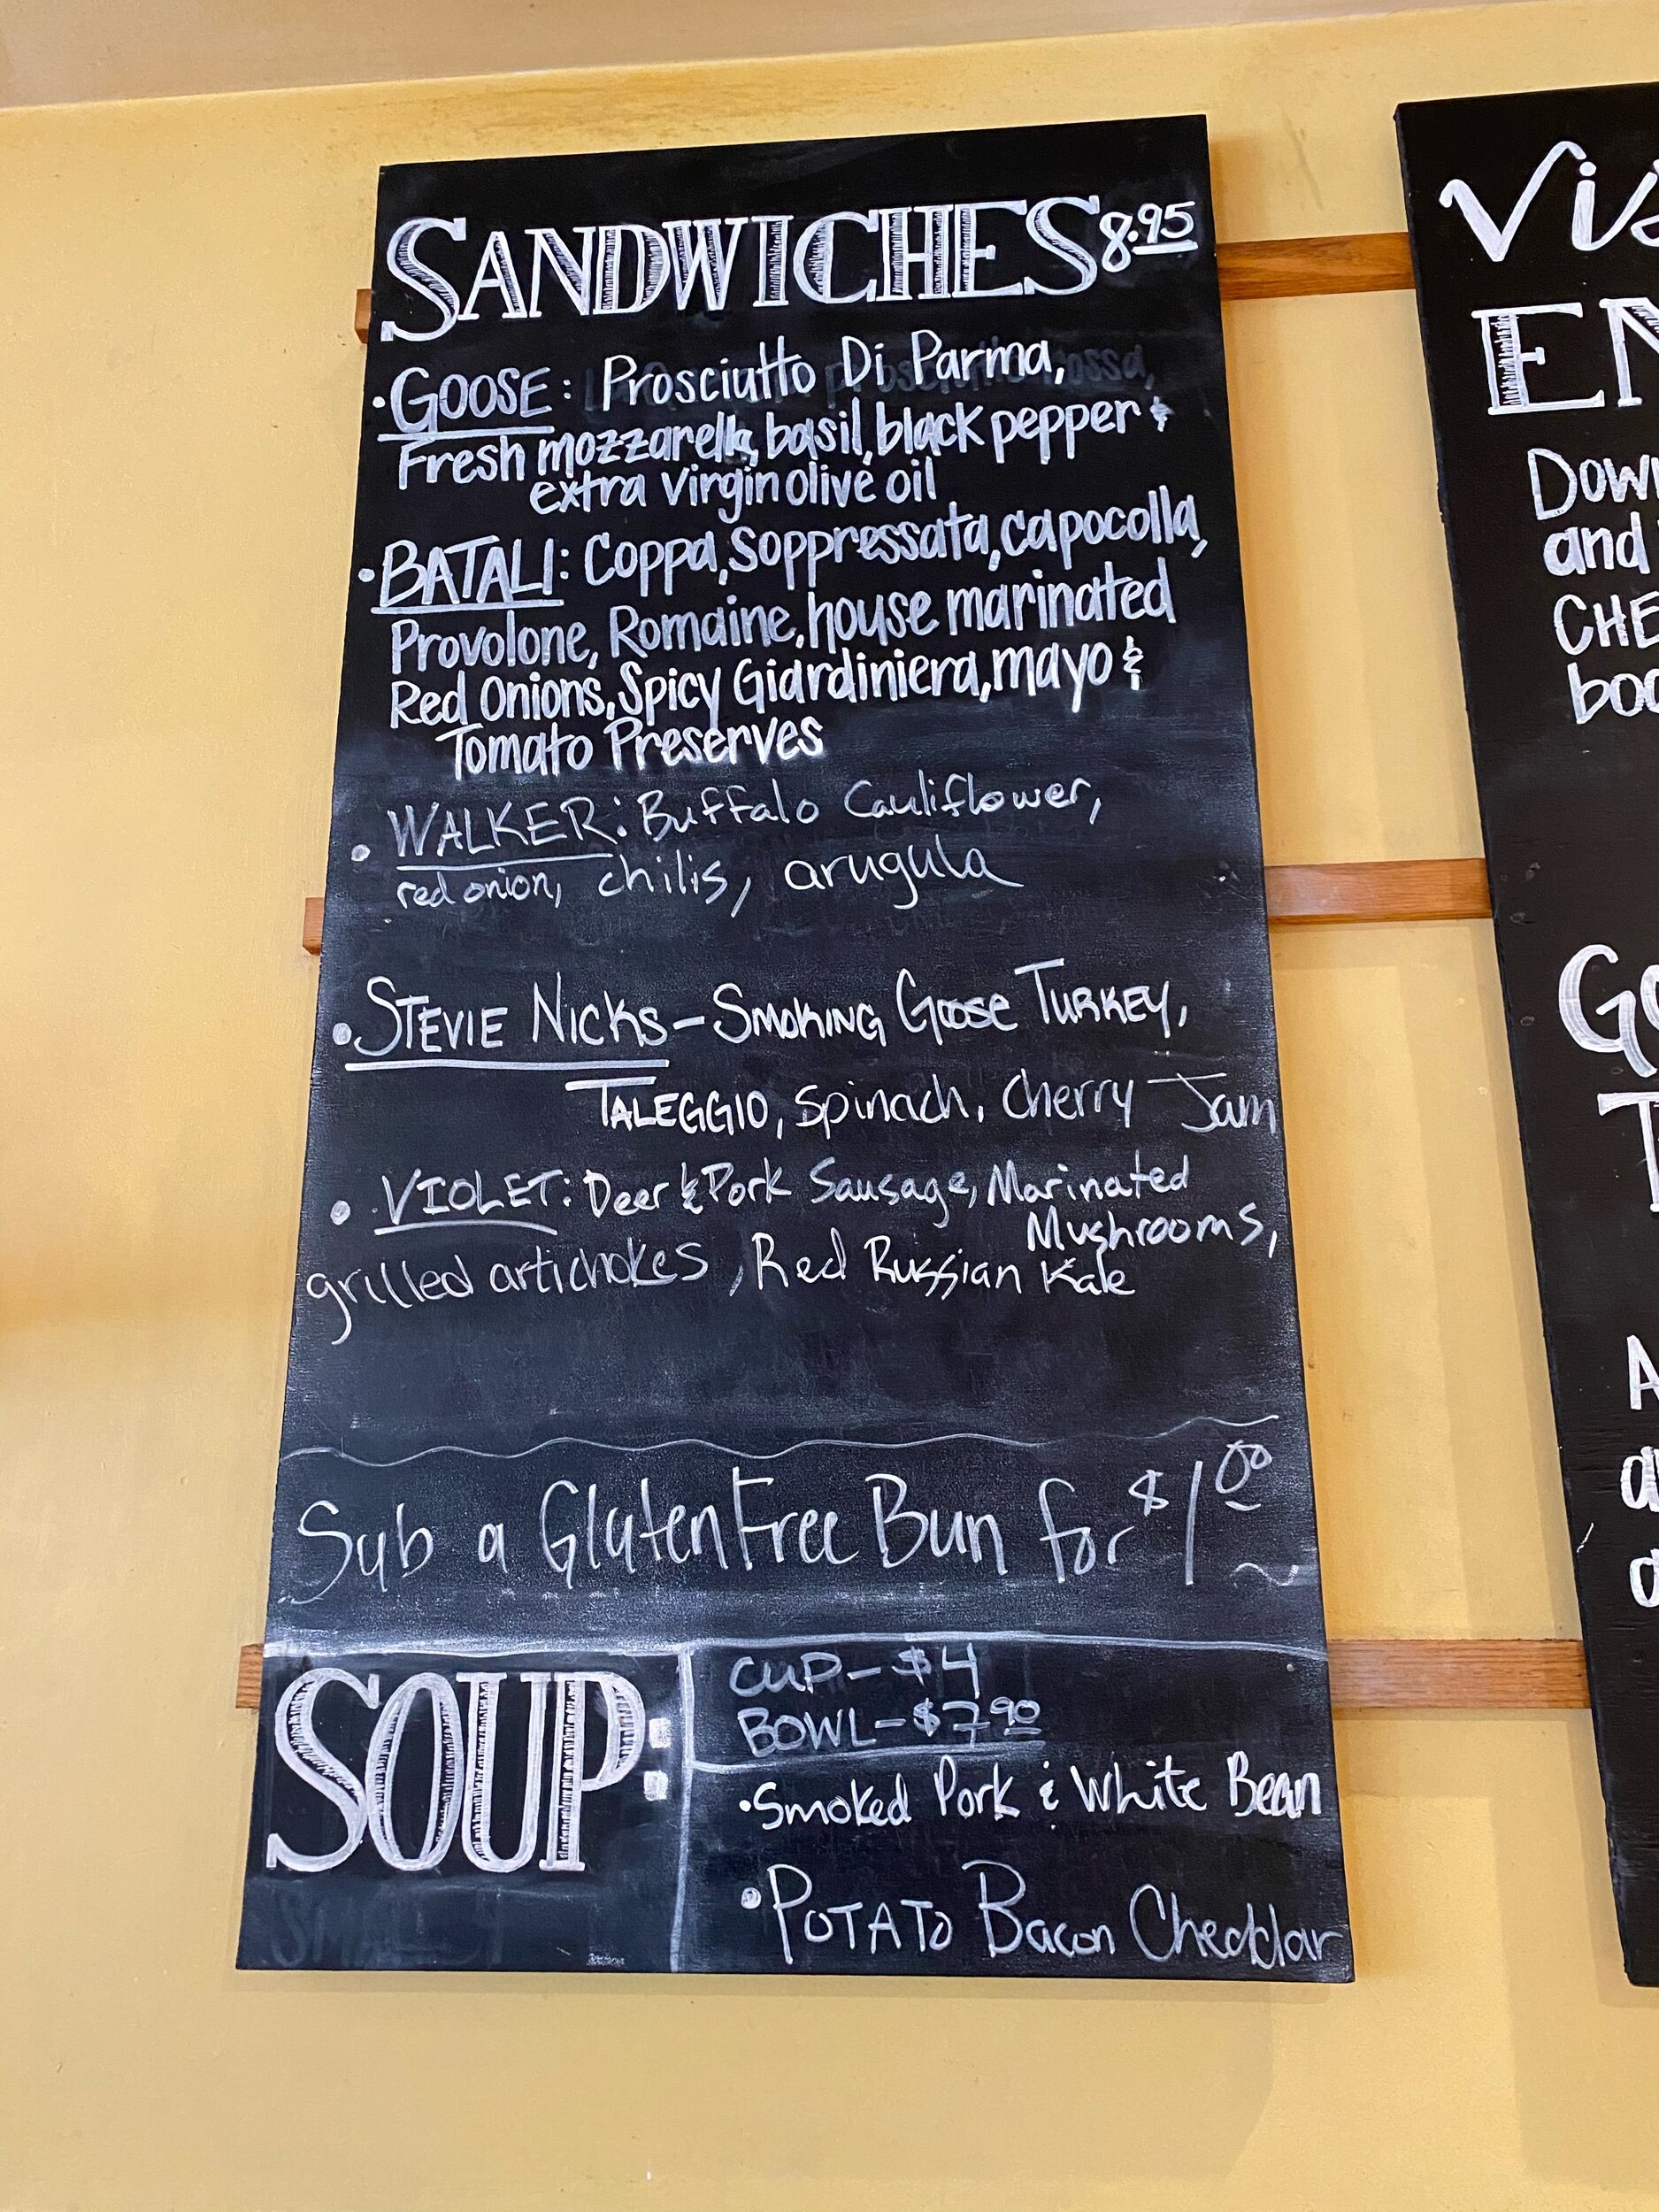 SANDWICHES 8.95
• GOOSE: Prosciutto Di Parma,
Fresh mozzarella, basil, black pepper &
extra virgin olive oil
• BATALI: Coppa, Soppressata, capocolla,
Provolone, Romaine, house marinated
Red Onions, Spicy Giardiniera, mayo &
Tomato Preserves
• WALKER: Buffalo Cauliflower,
red onion, chilis, arugula
• STEVIE NICKS - SMOKING GOOSE TURKEY,
TALEGGIO, spinach, cherry Jam
• VIOLET: Deer & Pork Sausage, Marinated
Mushrooms,
grilled artichokes, Red Russian Kale
Sub a Gluten Free Bun for $1.00
SOUP:
CUP - $4
BOWL - $7.90
• Smoked Pork & White Bean
• POTATO Bacon Cheddar
Vis
EN
Down
and
CHE
boo
Go
T
A
a